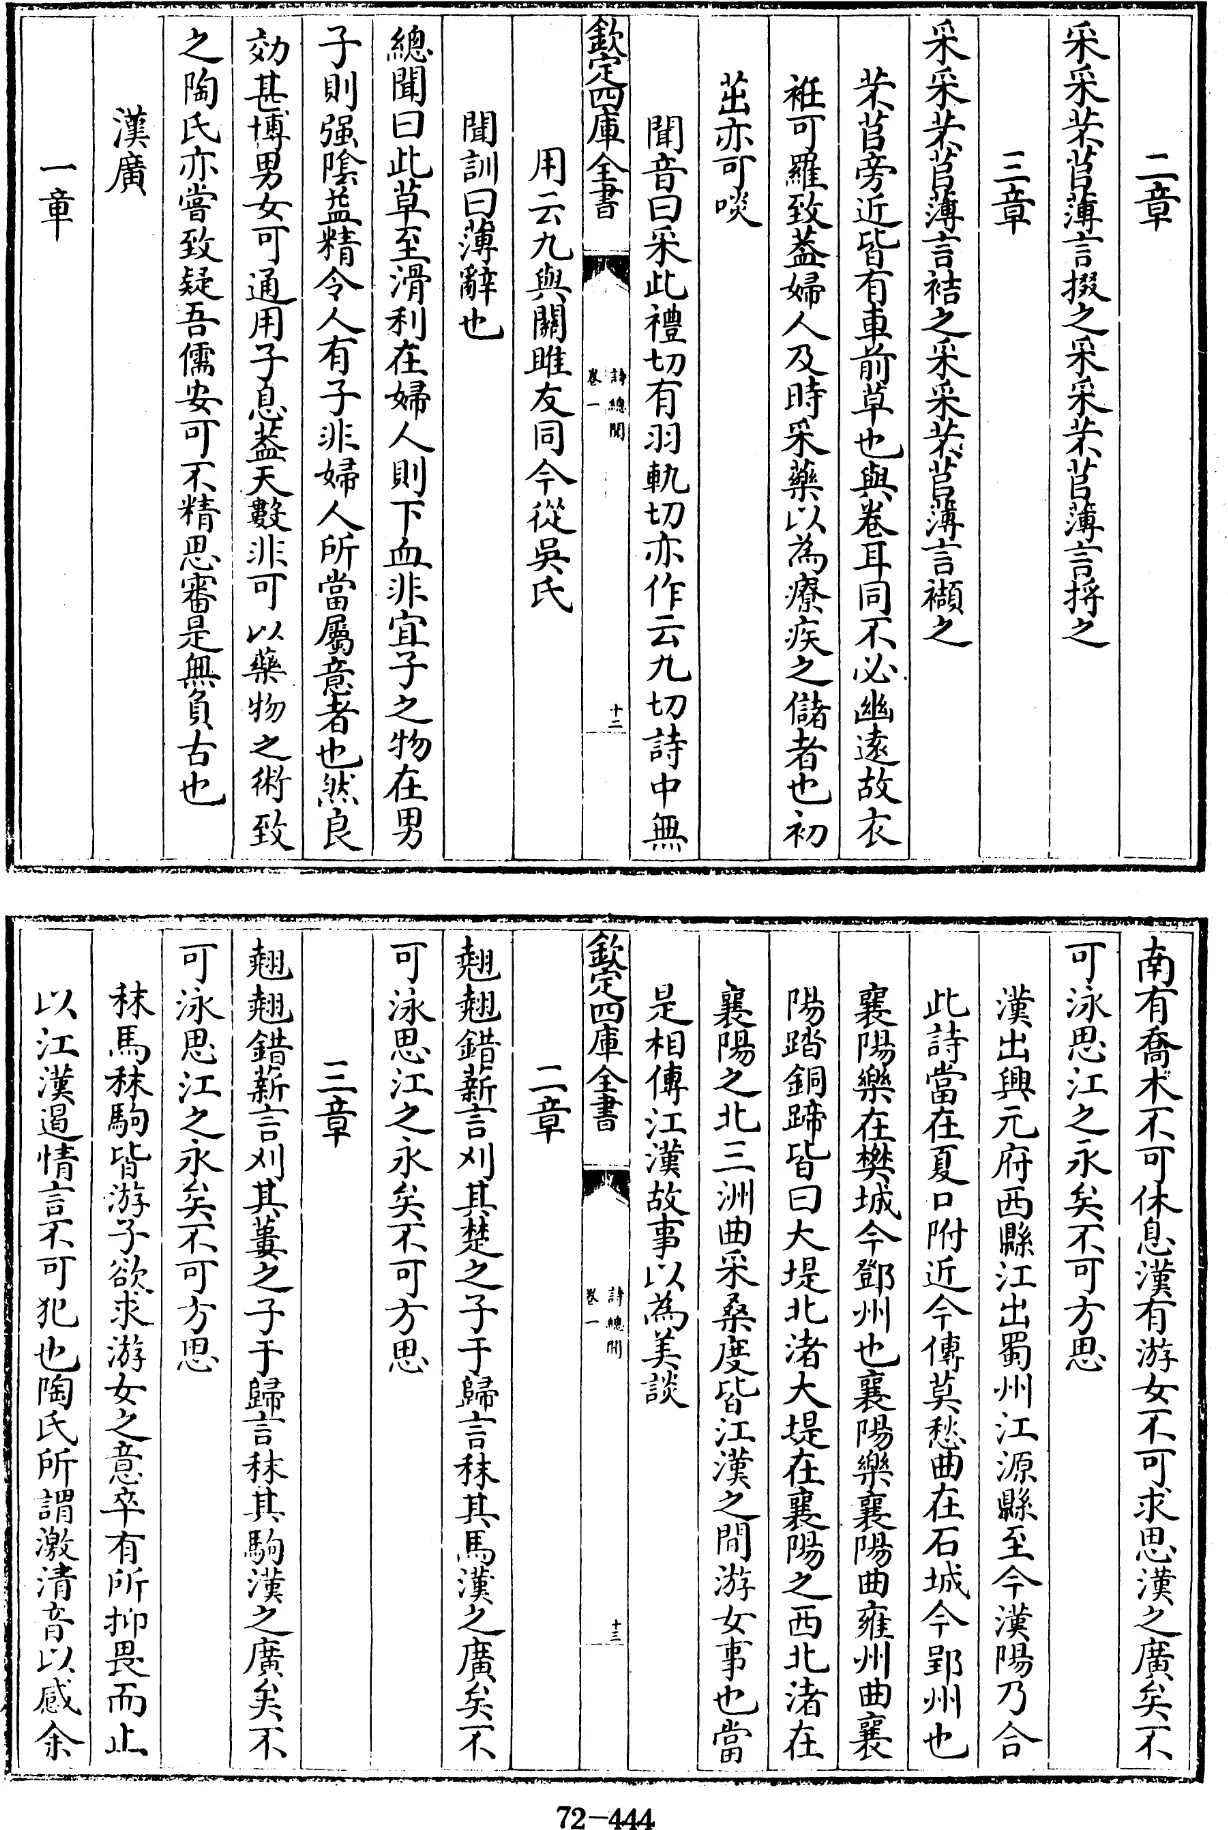 二章
采采芣苢薄言掇之采采芣苢薄言捋之
三章
采采芣苢薄言袺之采采芣苢薄言襭之
芣苢旁近皆有車前草也與卷耳同不必幽遠故衣
袵可羅致葢婦人及時采藥以為療疾之儲者也初
茁亦可啖
聞音曰采此禮切有羽軌切亦作云九切詩中無
欽定四庫全書
詩總聞
卷一
十二
用云九與關雎友同今從吳氏
聞訓曰薄辭也
總聞曰此草至滑利在婦人則下血非宜子之物在男
子則强陰益精令人有子非婦人所當屬意者也然良
効甚博男女可通用子息葢天數非可以藥物之術致
之陶氏亦嘗致疑吾儒安可不精思審是無負古也
漢廣
一章
南有喬木不可休息漢有游女不可求思漢之廣矣不
可泳思江之永矣不可方思
漢出興元府西縣江出蜀州江源縣至今漢陽乃合
此詩當在夏口附近今傳莫愁曲在石城今郢州也
襄陽樂在樊城今鄧州也襄陽樂襄陽曲雍州曲襄
陽踏銅蹄皆曰大堤北渚大堤在襄陽之西北渚在
襄陽之北三洲曲采桑度皆江漢之間游女事也當
是相傳江漢故事以為美談
欽定四庫全書
詩總聞
卷一
十三
二章
翹翹錯薪言刈其楚之子于歸言秣其馬漢之廣矣不
可泳思江之永矣不可方思
三章
翹翹錯薪言刈其蔞之子于歸言秣其駒漢之廣矣不
可泳思江之永矣不可方思
秣馬秣駒皆游子欲求游女之意卒有所抑畏而止
以江漢遏情言不可犯也陶氏所謂激清音以感余
72-444